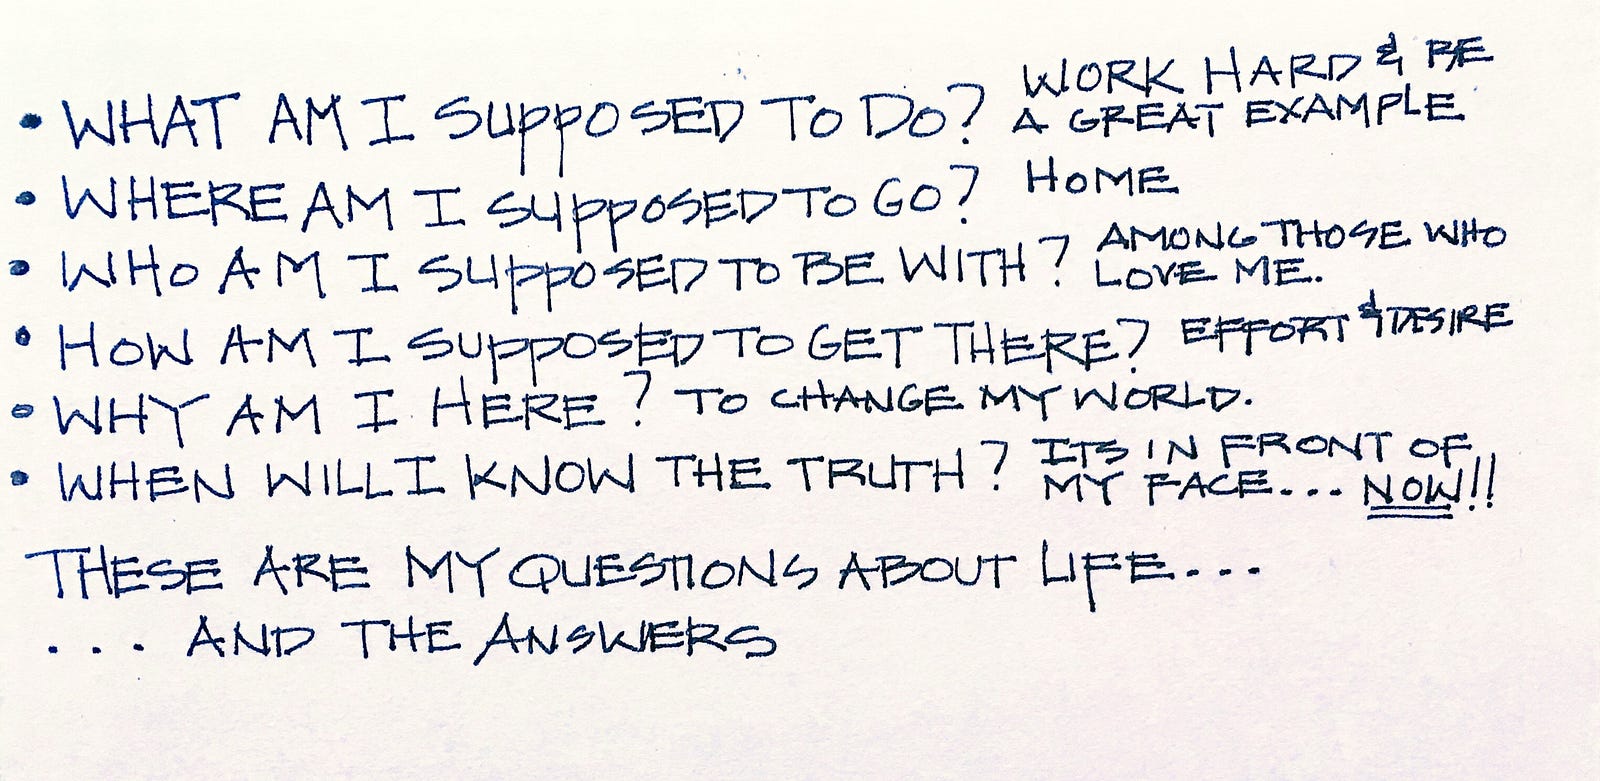 • WHAT AM I SUPPOSED TO DO? WORK HARD & BE
A GREAT EXAMPLE
• WHERE AM I SUPPOSED TO GO? HOME
• WHO AM I SUPPOSED TO BE WITH? AMONG THOSE WHO
LOVE ME.
• HOW AM I SUPPOSED TO GET THERE? EFFORT & DESIRE
• WHY AM I HERE? TO CHANGE MY WORLD.
• WHEN WILL I KNOW THE TRUTH? ITS IN FRONT OF
MY FACE... NOW!!
THESE ARE MY QUESTIONS ABOUT LIFE...
... AND THE ANSWERS